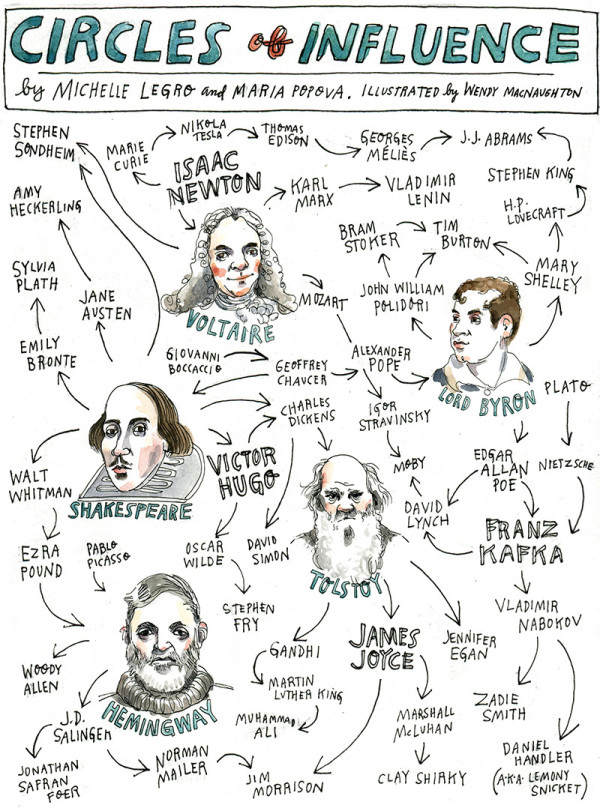 CIRCLES of INFLUENCE
by MICHELLE LEGRO and MARIA POPOVA. ILLUSTRATED by WENDY MACNAUGHTON
STEPHEN
SONDHEIM
MARIE
CURIE
NIKOLA
TESLA
THOMAS
EDISON
GEORGES
MÉLIÈS
J.J. ABRAMS
ISAAC
NEWTON
KARL
MARX
VLADIMIR
LENIN
STEPHEN KING
AMY
HECKERLING
H.P.
LOVECRAFT
BRAM
STOKER
TIM
BURTON
MARY
SHELLEY
SYLVIA
PLATH
JANE
AUSTEN
MOZART
JOHN WILLIAM
POLIDORI
VOLTAIRE
EMILY
BRONTE
GIOVANNI
BOCCACCIO
GEOFFREY
CHAUCER
ALEXANDER
POPE
LORD BYRON
PLATO
CHARLES
DICKENS
IGOR
STRAVINSKY
WALT
WHITMAN
SHAKESPEARE
VICTOR
HUGO
MOBY
EDGAR
ALLAN
POE
NIETZSCHE
DAVID
LYNCH
FRANZ
KAFKA
EZRA
POUND
PABLO
PICASSO
OSCAR
WILDE
DAVID
SIMON
TOLSTOY
STEPHEN
FRY
VLADIMIR
NABOKOV
GANDHI
JAMES
JOYCE
JENNIFER
EGAN
WOODY
ALLEN
HEMINGWAY
MARTIN
LUTHER KING
ZADIE
SMITH
J.D.
SALINGER
MUHAMMAD
ALI
MARSHALL
McLUHAN
JONATHAN
SAFRAN
FOER
NORMAN
MAILER
JIM
MORRISON
CLAY SHIRKY
DANIEL
HANDLER
(A.K.A. LEMONY
SNICKET)